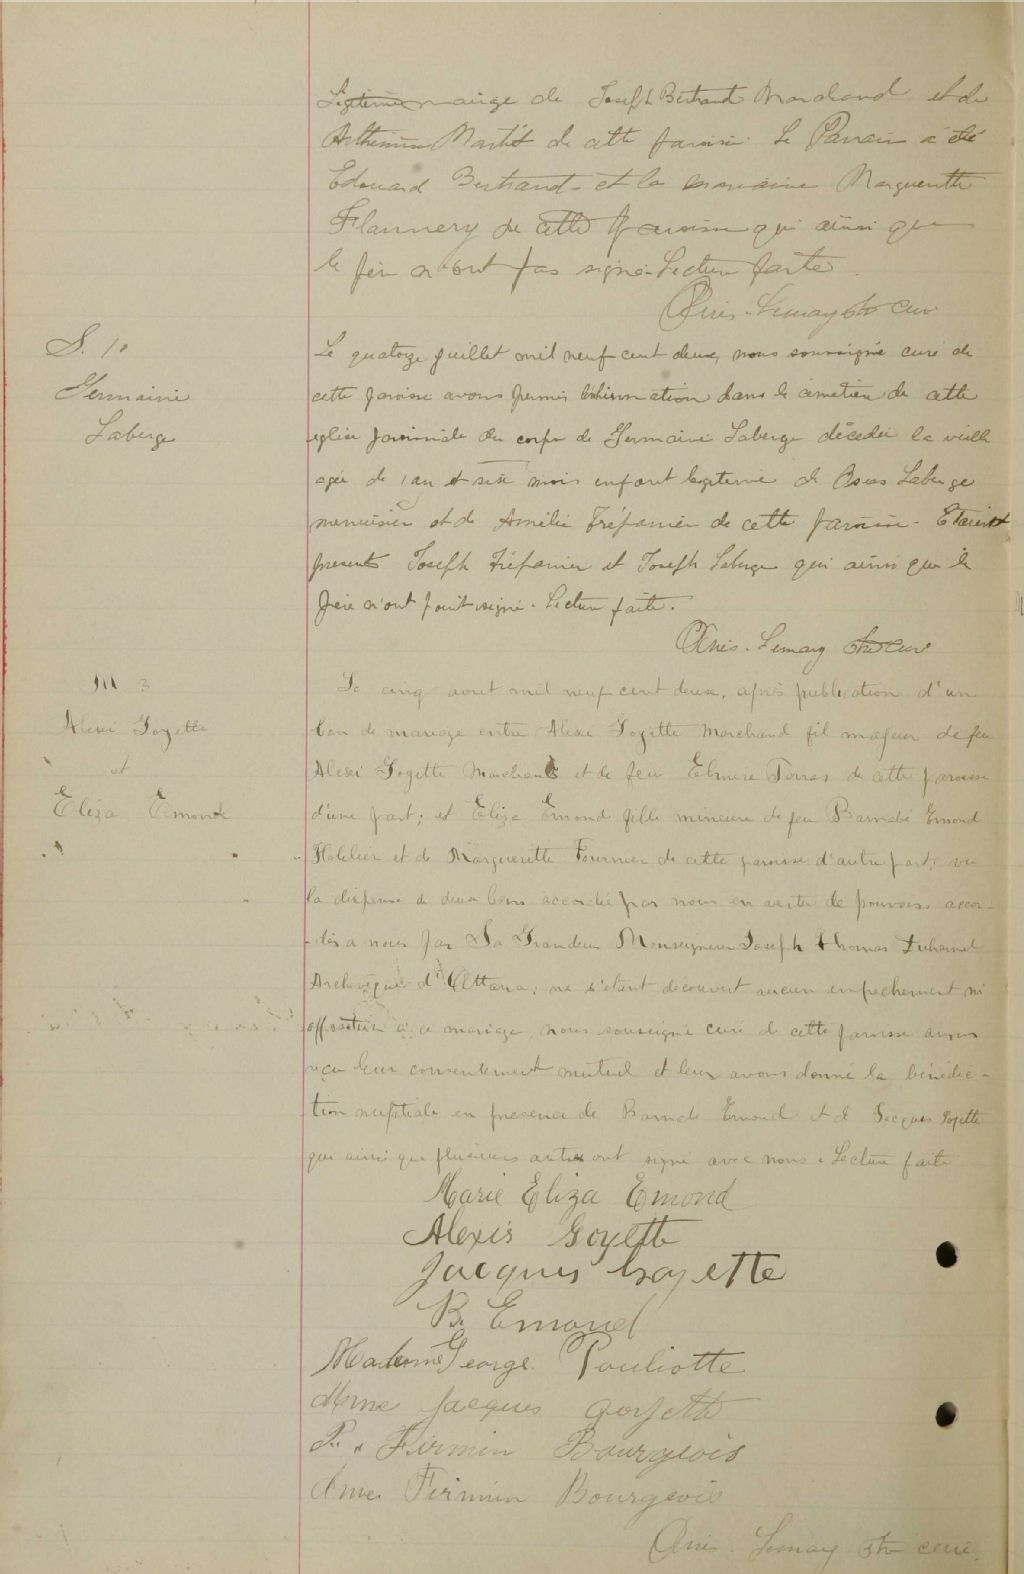 Legitime mariage de Joseph Bertrand Marchand et de
Arthémise de cette paroisse. Le Parrain a été
Edouard Bertrand et la marraine Marguerite
Flannery de cette paroisse qui ainsi que
le père n'ont pas signé. Lecture faite
Lemay ptre curé
S. 10
Germaine
Laberge
Le quatorze juillet mil neuf cent deux, nous soussigné curé de
cette paroisse avons permis l'inhumation dans le cimetière de cette
eglise paroissiale du corps de Germaine Laberge décedée la veille
agée de 1 an et six mois enfant legitime de Laberge
menuisier et de Amélie Trépanier de cette paroisse - Etaient
presents Joseph Trépanier et Joseph Laberge qui ainsi que le
père n'ont point signé. Lecture faite.
Lemay ptre curé
M 3
Alexi Goyette
et
Eliza Emonde
Le cinq aout mil neuf cent deux, après publication d'un
ban de mariage entre Alexi Goyette Marchand fil majeur de feu
Alexi Goyette Marchand et de feu Elmire de cette paroisse
d'une part; et Eliza Emond fille mineure de feu Barnabé Emond
Hotelier et de Marguerite Fournier de cette paroisse d'autre part; vu
la dispense de deux bans accordée par nous en vertu de pouvoirs accor-
-dés a nous par Sa Grandeur Monseigneur Joseph Thomas Duhamel
Archevêque d'Ottawa; ne s'étant découvert aucun empechement ni
opposition à ce mariage, nous soussigné curé de cette paroisse avons
reçu leur consentement mutuel et leur avons donné la bénédic-
tion nuptiale en presence de Barnabé Emond et de Jacques Goyette
qui ainsi que plusieurs autres ont signé avec nous. Lecture faite
Marie Eliza Emond
Alexis Goyette
Jacques Goyette
B. Emond
Madame George Pouliotte
Mme Jacques Goyette
Firmin Bourgeois
Dme Firmin Bourgeois
Lemay ptre curé